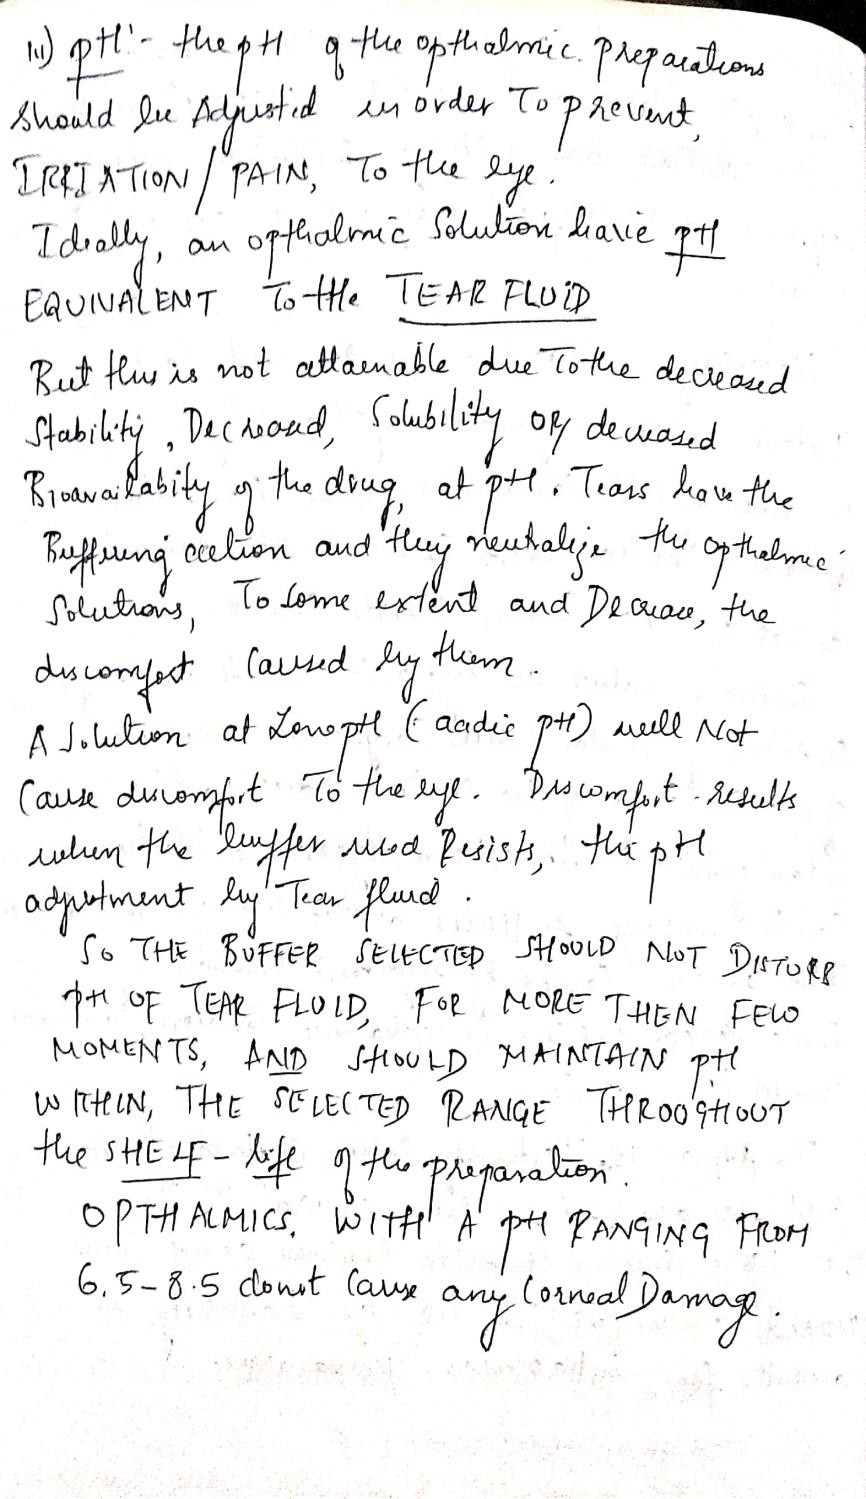 iii) pH:- the pH of the opthalmic preparations
should be Adjusted in order To prevent,
IRRIATION/PAIN, To the eye.
Ideally, an opthalmic Solution have pH
EQUIVALENT To the TEAR FLUID
But this is not attaenable due To the decreased
Stability, Decreased, Solubility OR decreased
Bioavailabity of the drug, at pH. Tears have the
Buffering action and they neutralize the opthalmic
Solutions, To some extent and Decrease, the
discomfort Caused by them.
A Solution at Low pH (acidic pH) will Not
Cause discomfort To the eye. Discomfort results
when the buffer used Resists, the pH
adjustment by Tear fluid.
So THE BUFFER SELECTED SHOULD NOT DISTURB
pH OF TEAR FLUID, FOR MORE THEN FEW
MOMENTS, AND SHOULD MAINTAIN pH
WITHIN, THE SELECTED RANGE THROOGHOUT
the SHELF-life of the preparation.
OPTHALMICS, WITH A pH RANGING FROM
6.5-8.5 donot Cause any Corneal Damage.